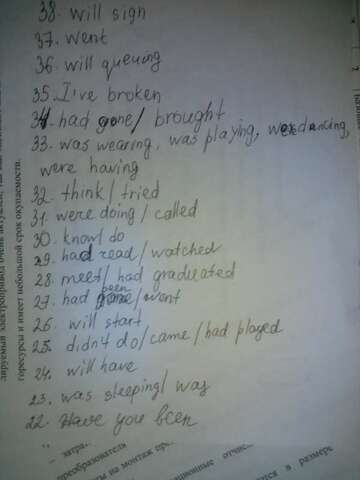 38. will sign
37. went
36. will queuing
35. I've broken
34. had gone/ brought
33. was wearing, was playing, were dancing,
were having
32. think/ tried
31. were doing/ called
30. know/ do
29. had read/ watched
28. meet/ had graduated
27. had been gone/went
26. will start
25. didn't do/came/had played
24. will have
23. was sleeping/ way
22. Have you been
горесурсы и имеет небольшой срок окупаемости.
затра
преобразователь
ты на монтаж
ционные отчис
ются в размере